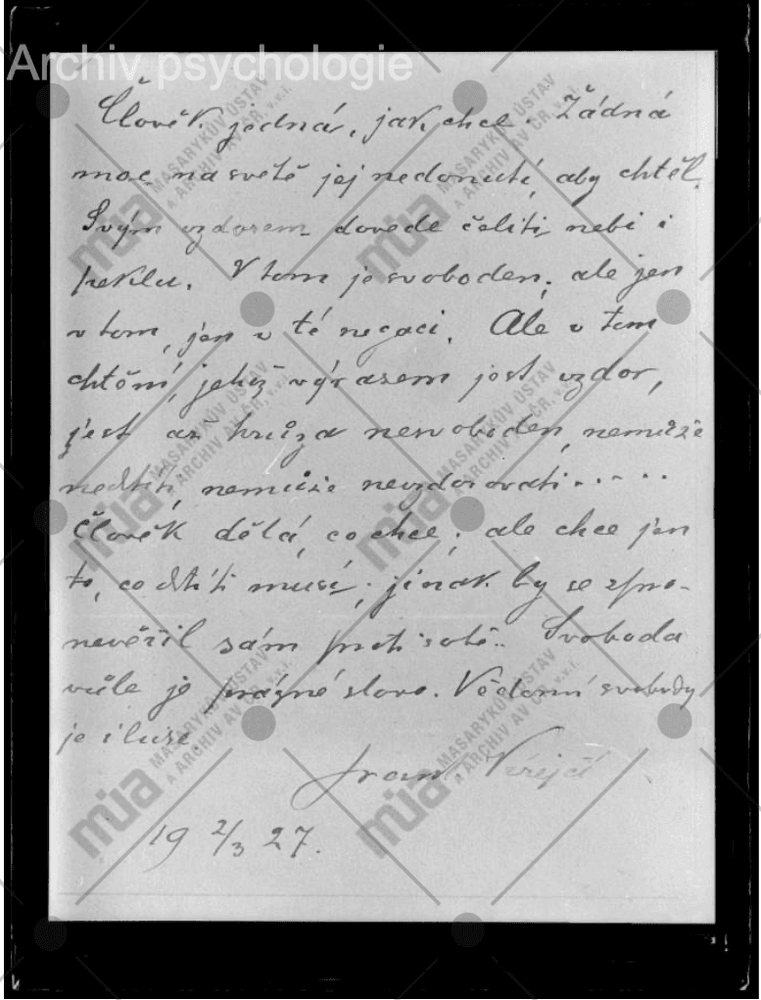 Archiv psychologie
Člověk jedná, jak chce. Žádná
moc na světě jej nedonutí, aby chtěl.
Svým vzdorem dovede čeliti nebi i
peklu. V tom je svoboden; ale jen
v tom, jen v té negaci. Ale v tom
chtění, jehož výrazem jest vzdor,
jest až hrůza nesvoboden, nemůže
nechtíti, nemůže nevzdorovati.....
Člověk dělá, co chce; ale chce jen
to, co chtíti musí; jinak by se zpro-
nevěřil sám proti sobě. Svoboda
vůle je prázné slovo. Vědomí svobody
je iluse.
Frant. Krejčí
19 2/3 27.
MASARYKŮV ÚSTAV
A ARCHIV AV ČR, v.v.i.
múa